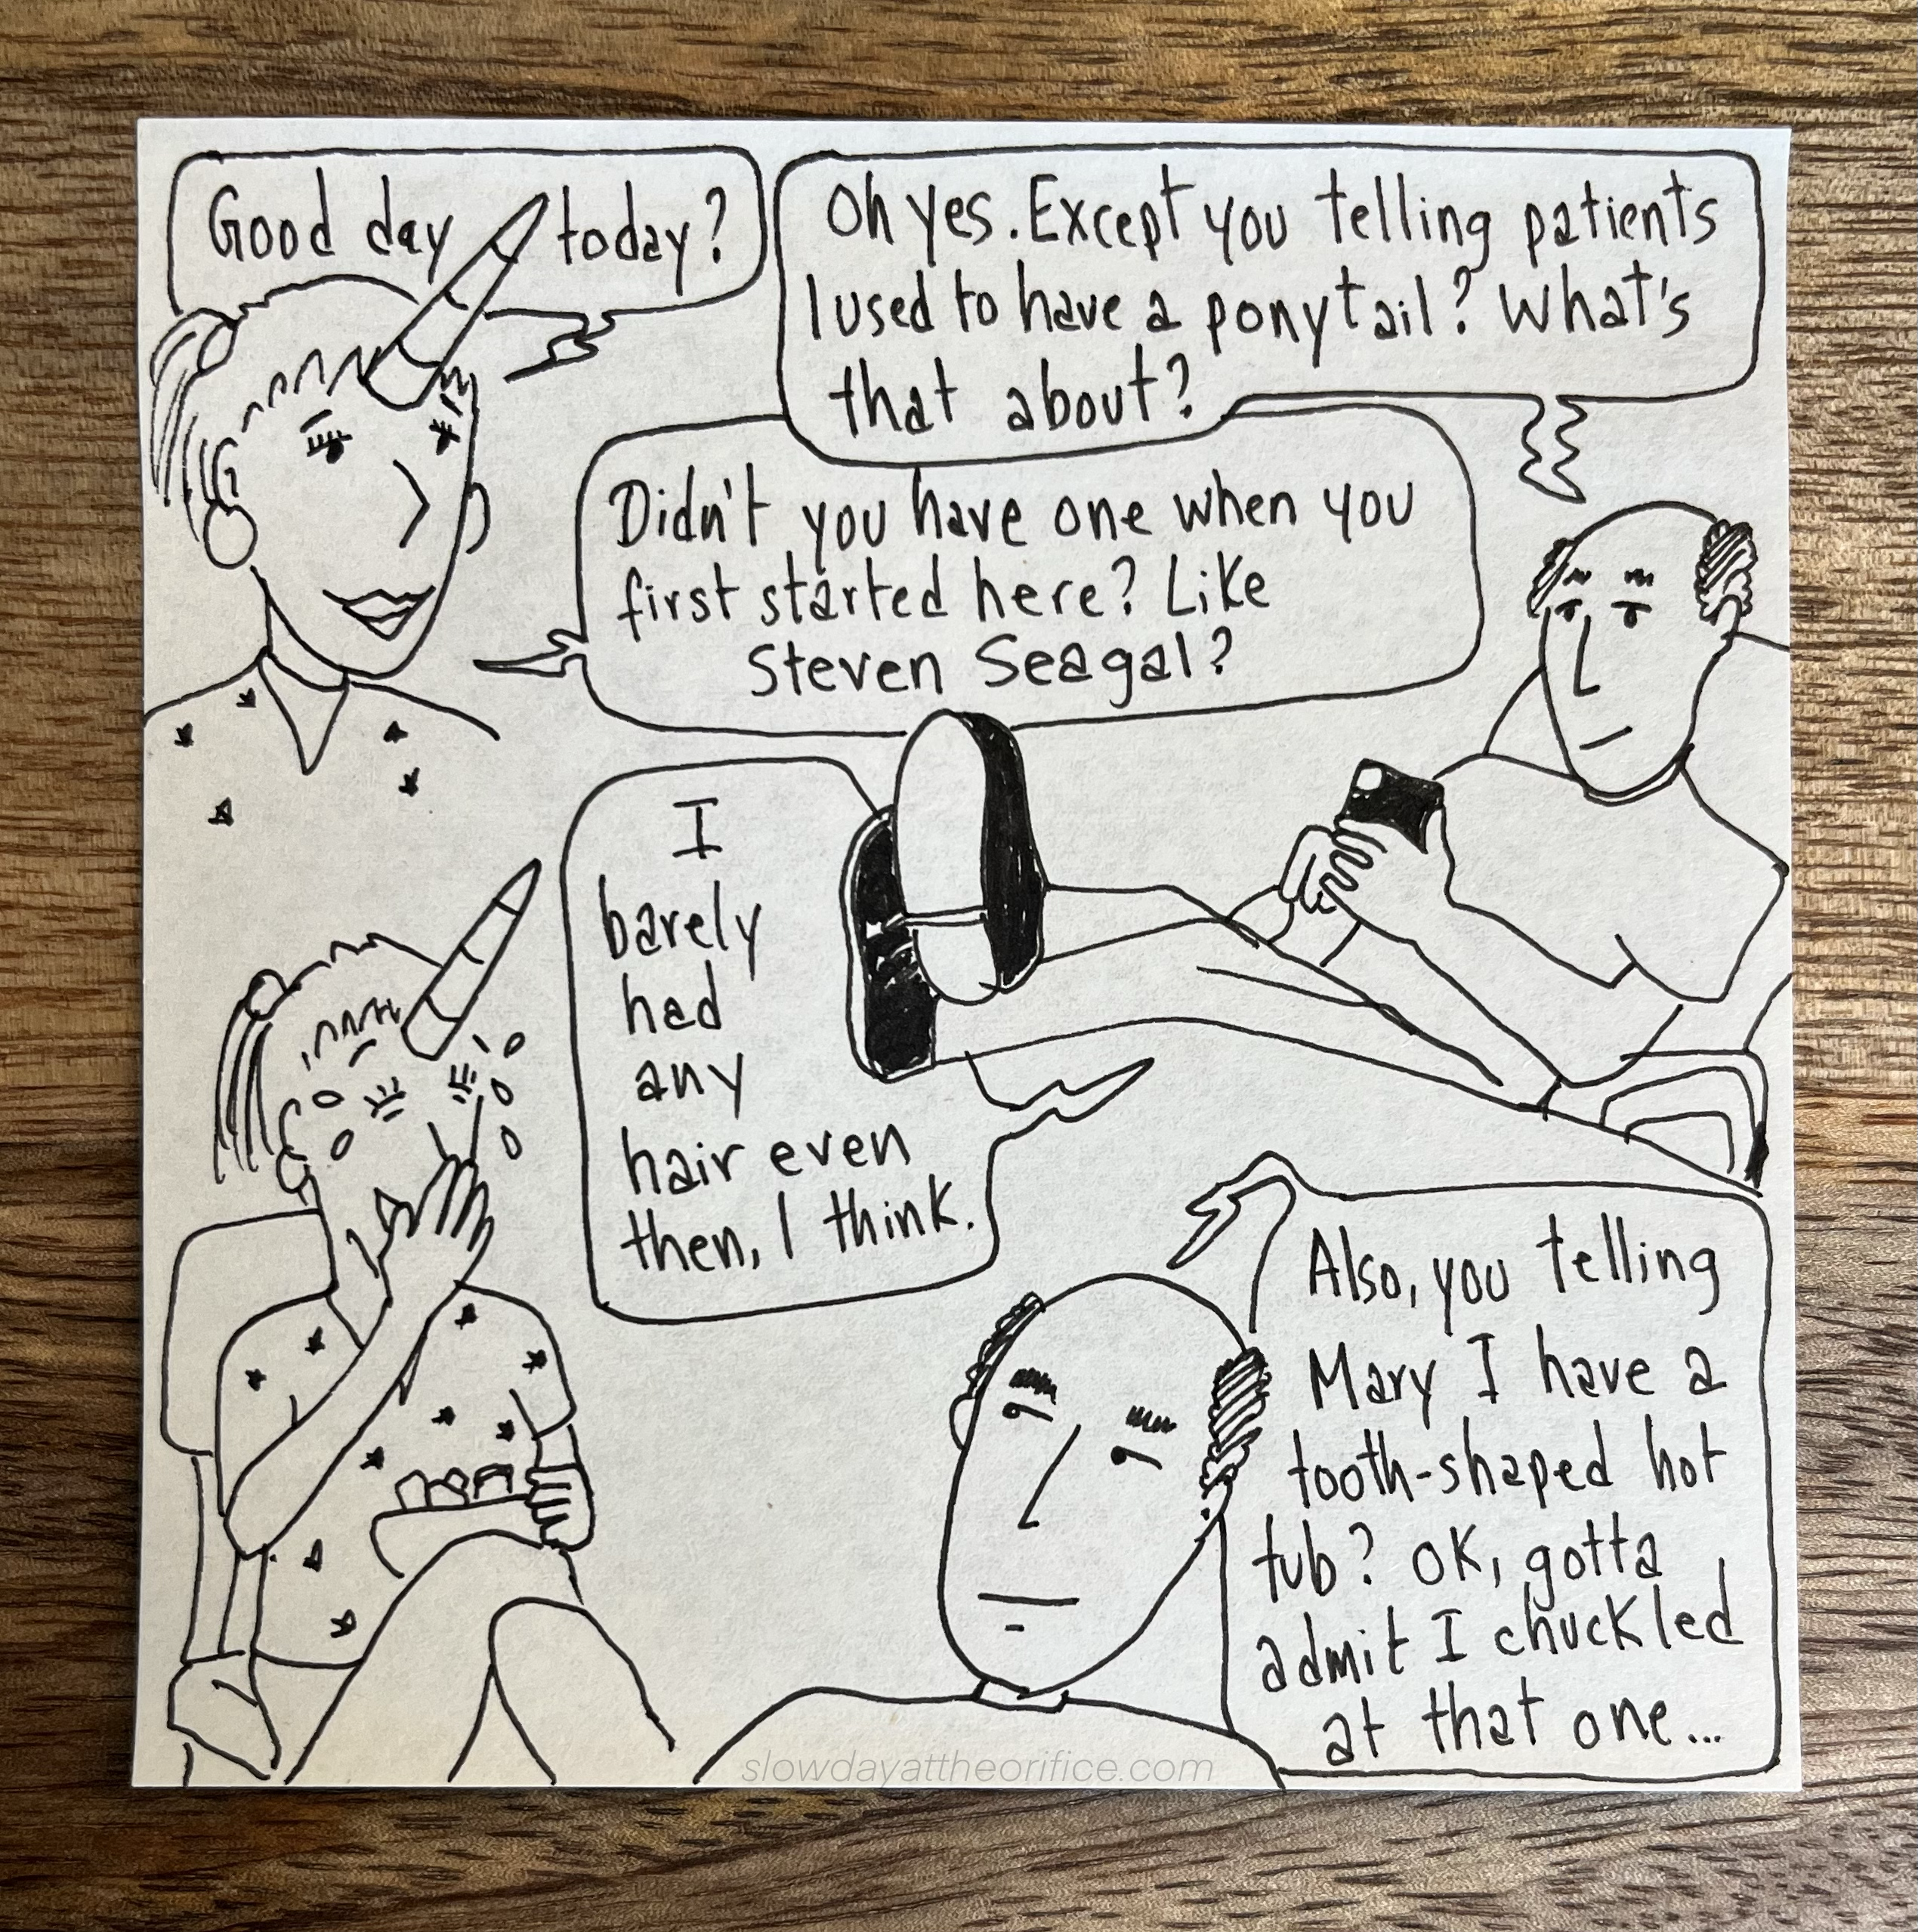 Good day today?
Oh yes. Except you telling patients
I used to have a ponytail? What's
that about?
Didn't you have one when you
first started here? Like
Steven Seagal?
I
barely
had
any
hair even
then, I think.
Also, you telling
Mary I have a
tooth-shaped hot
tub? OK, gotta
admit I chuckled
at that one...
slowdayattheorifice.com